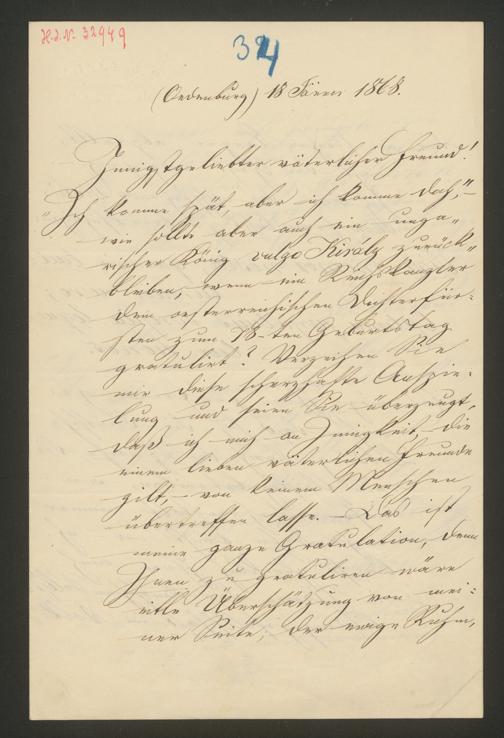 H.I.N. 32949
324
(Oedenburg) 18 Jänner 1868.
Innigstgeliebter väterlicher Freund!
"Ich komme spät, aber ich komme doch," –
wie sollte aber auch ein unga-
rischer König vulgo Király zurück-
bleiben, wenn ein Reichskanzler
dem oesterreichischen Dichterfür-
sten zum 78-ten Geburtstag
gratulirt? Verzeihen Sie
mir diese scherzhafte Anspie-
lung und seien Sie überzeugt,
daß ich mich an Innigkeit, die
einem lieben väterlichen Freunde
gilt, – von keinem Menschen
übertreffen lasse. – Das ist
meine ganze Gratulation, denn
Ihnen zu gratuliren wäre
eitle Überschätzung von mei-
ner Seite; der ewige Ruhm,